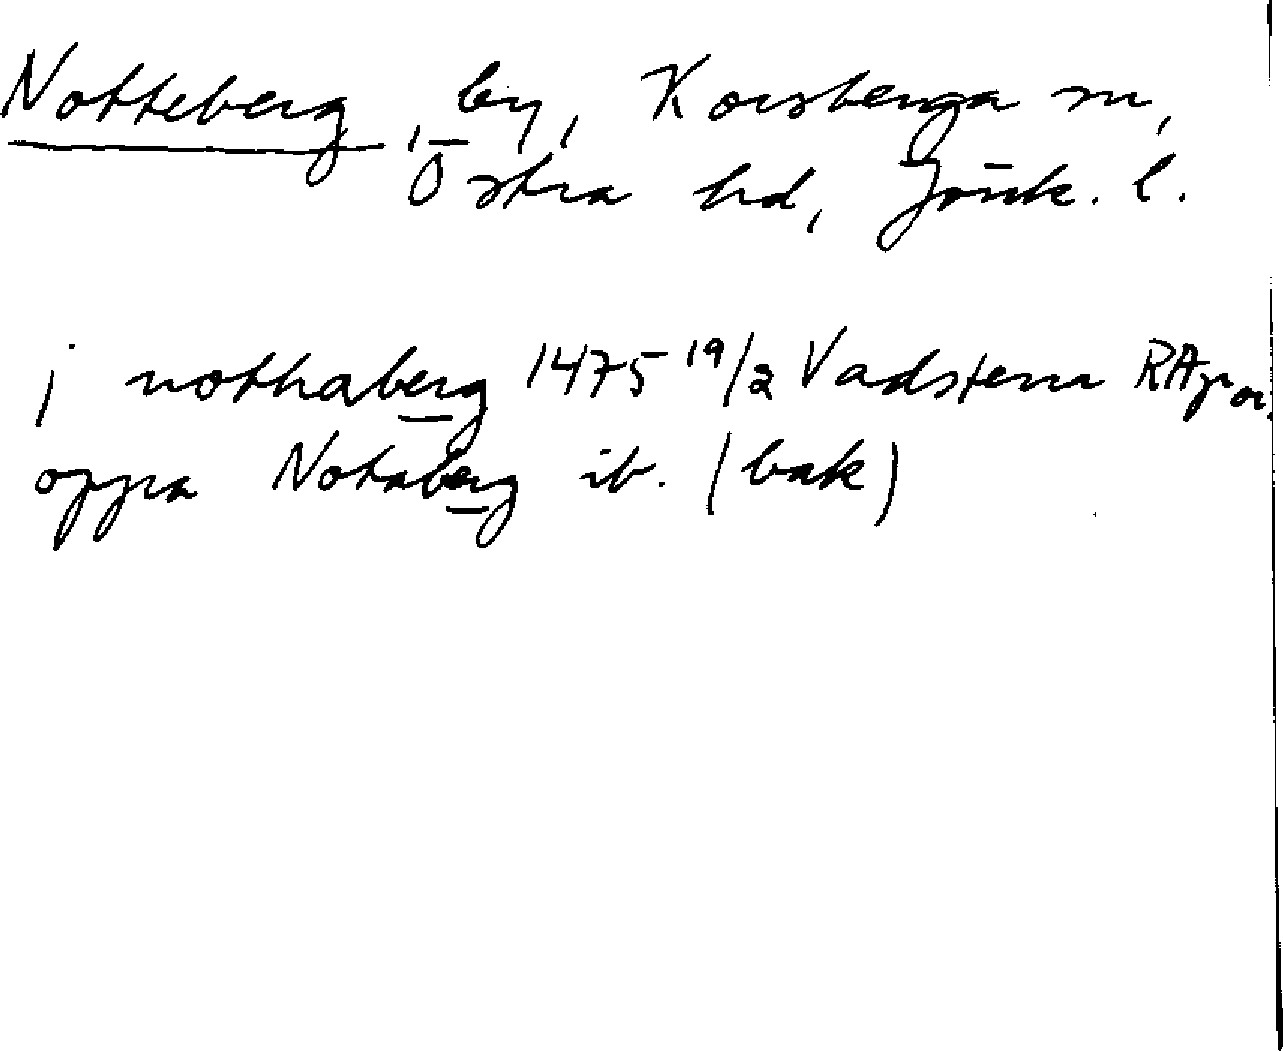 Notteberg, by, Korsberga sn,
Östra hd, Jönk. l.
j nothaberg 1475 19/2 Vadstena RAp or.
oppa Notaberg ib. (bak)